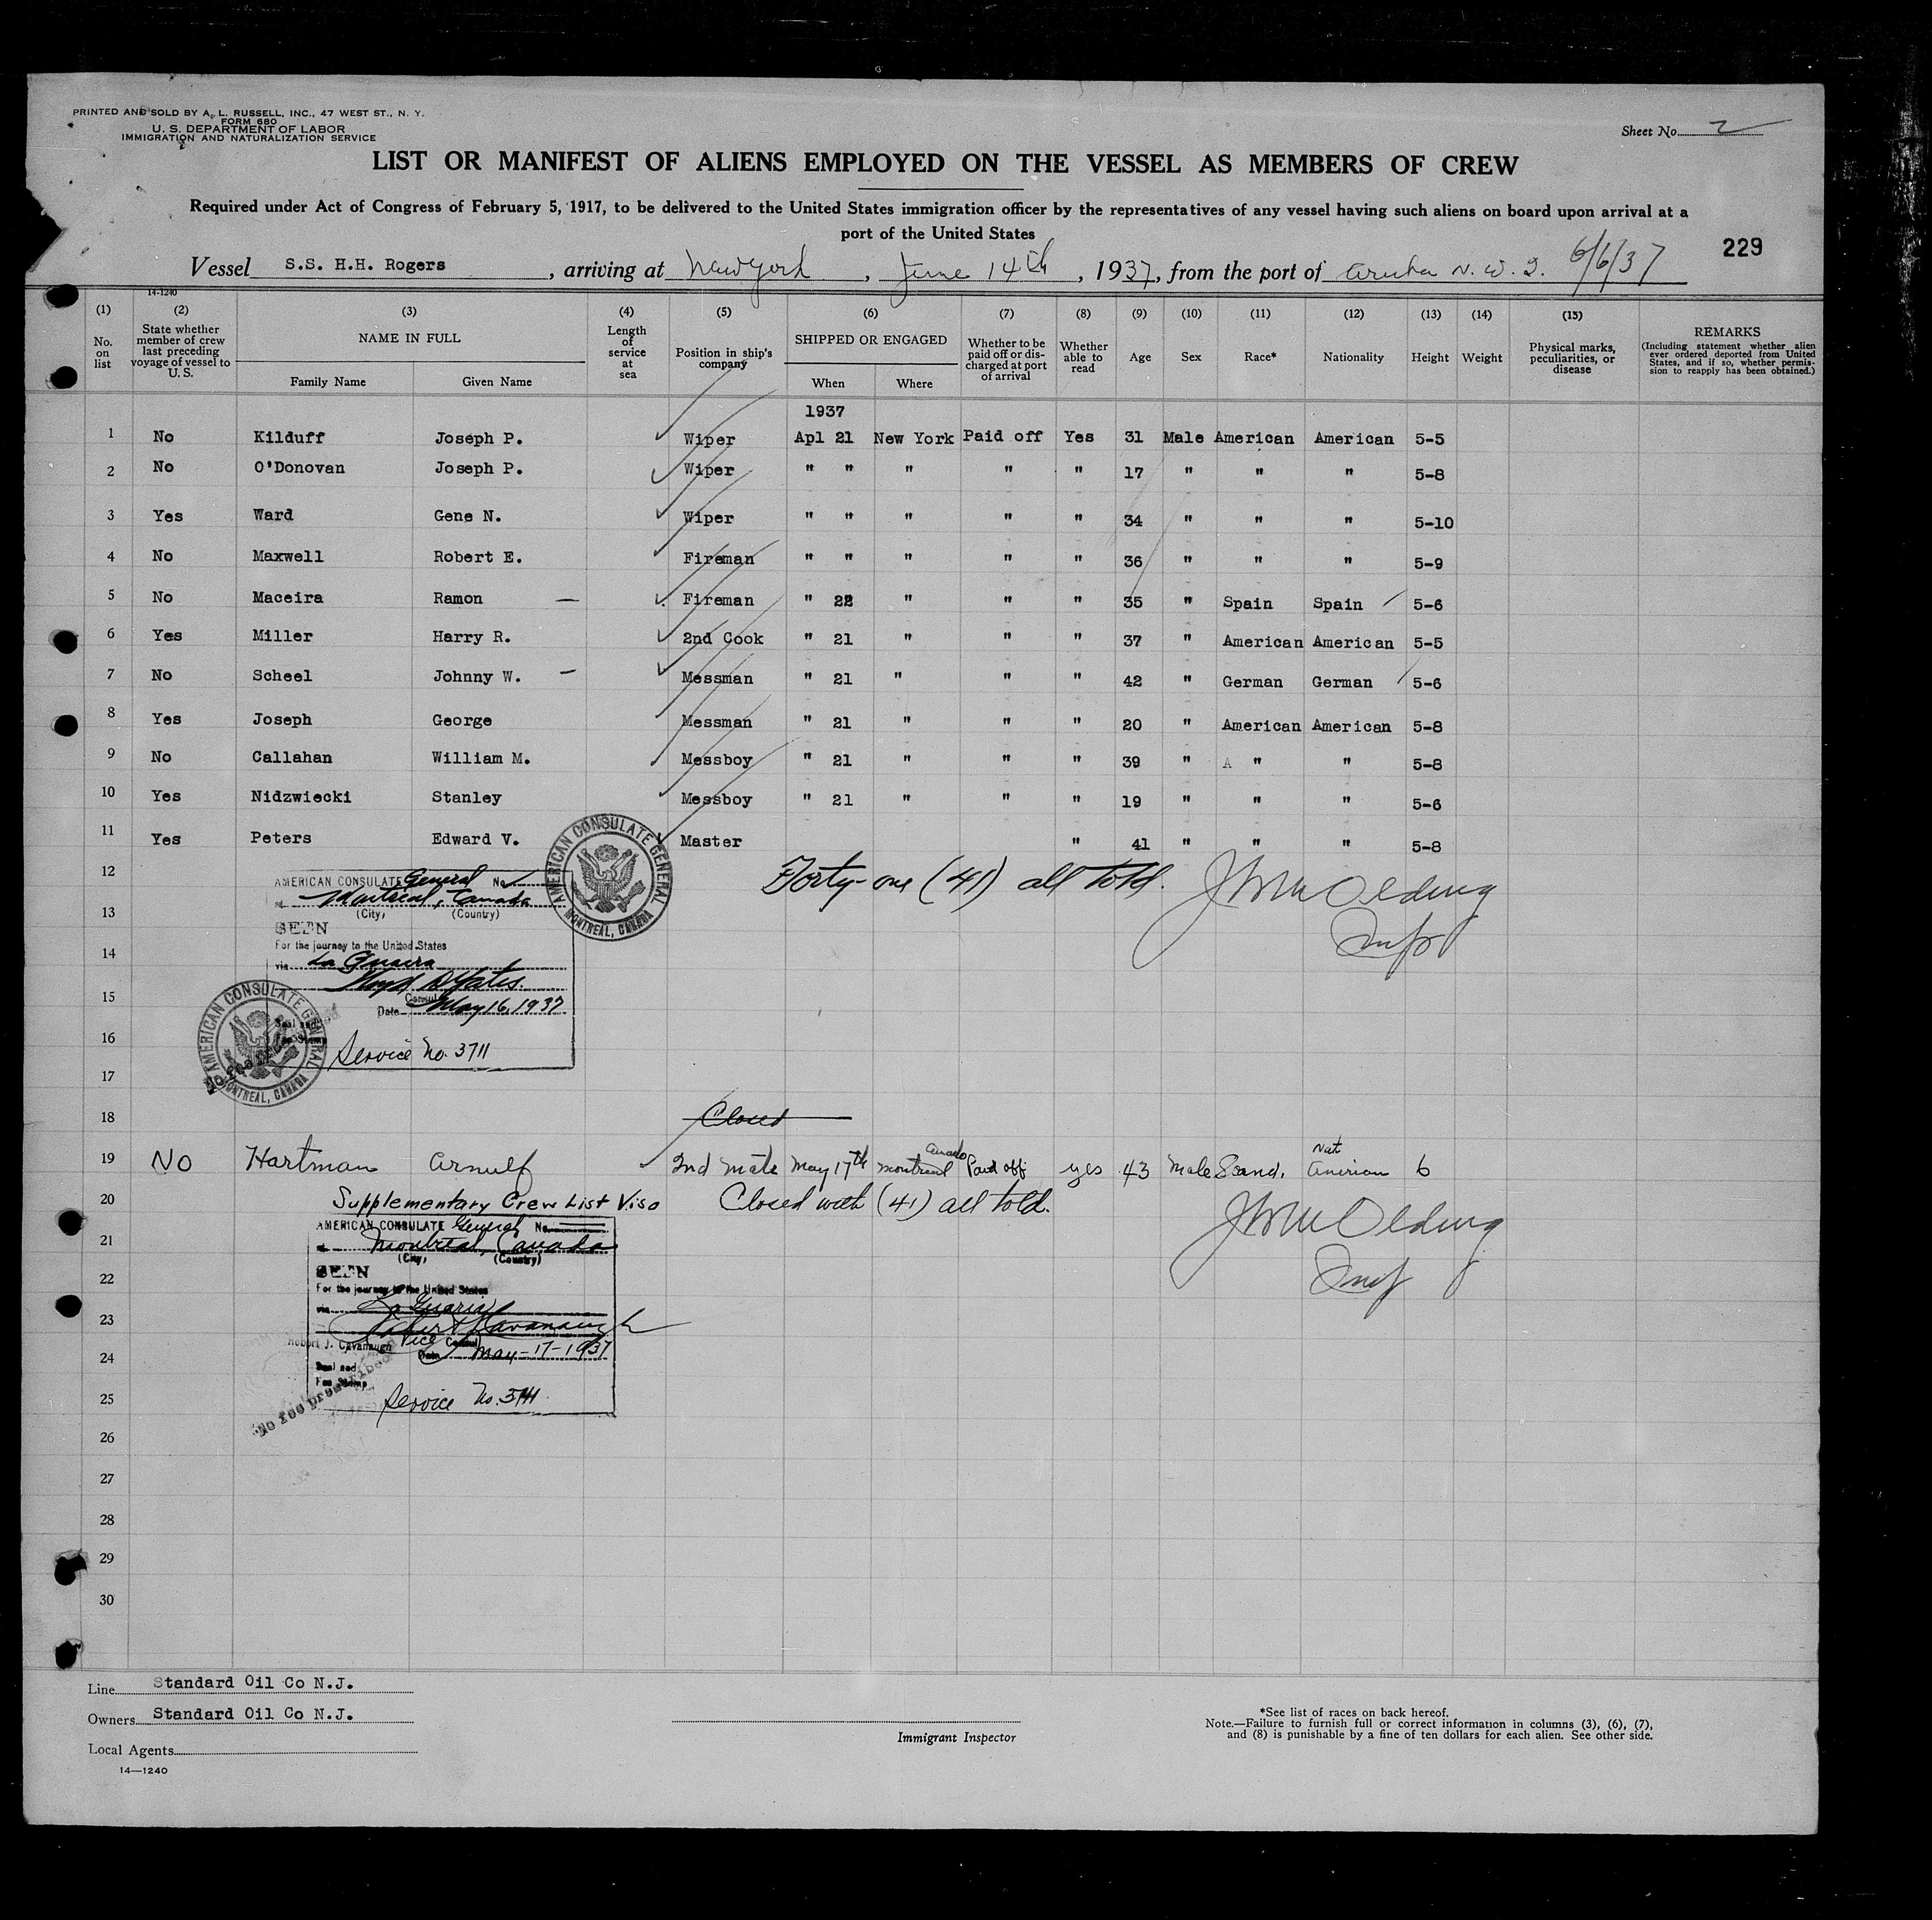 PRINTED AND SOLD BY A. L. RUSSELL, INC., 47 WEST ST., N. Y.
FORM 680
U. S. DEPARTMENT OF LABOR
IMMIGRATION AND NATURALIZATION SERVICE
Sheet No. 2
LIST OR MANIFEST OF ALIENS EMPLOYED ON THE VESSEL AS MEMBERS OF CREW
Required under Act of Congress of February 5, 1917, to be delivered to the United States immigration officer by the representatives of any vessel having such aliens on board upon arrival at a
port of the United States
229
Vessel S.S. H.H. Rogers, arriving at New York, June 14th, 1937, from the port of Aruba N. W. I. 6/6/37
14-1240
(1) (2) (3) (4) (5) (6) (7) (8) (9) (10) (11) (12) (13) (14) (15)
No. on list
State whether member of crew last preceding voyage of vessel to U. S.
NAME IN FULL
Family Name Given Name
Length of service at sea
Position in ship's company
SHIPPED OR ENGAGED
When Where
Whether to be paid off or discharged at port of arrival
Whether able to read
Age Sex Race* Nationality Height Weight
Physical marks, peculiarities, or disease
REMARKS
(Including statement whether alien ever ordered deported from United States, and if so, whether permission to reapply has been obtained.)
1937
1 No Kilduff Joseph P. Wiper Apl 21 New York Paid off Yes 31 Male American American 5-5
2 No O'Donovan Joseph P. Wiper " " " " " 17 " " " 5-8
3 Yes Ward Gene N. Wiper " " " " " 34 " " " 5-10
4 No Maxwell Robert E. Fireman " " " " " 36 " " " 5-9
5 No Maceira Ramon — Fireman " 22 " " " 35 " Spain Spain 5-6
6 Yes Miller Harry R. 2nd Cook " 21 " " " 37 " American American 5-5
7 No Scheel Johnny W. — Messman " 21 " " " 42 " German German 5-6
8 Yes Joseph George Messman " 21 " " " 20 " American American 5-8
9 No Callahan William M. Messboy " 21 " " " 39 " A " " 5-8
10 Yes Nidzwiecki Stanley Messboy " 21 " " " 19 " " " 5-6
11 Yes Peters Edward V. Master " 41 " " " 5-8
12
Forty-one (41) all told.
AMERICAN CONSULATE GENERAL
MONTREAL, CANADA
AMERICAN CONSULATE General No.
at Montreal, Canada
13
(City) (Country)
SEEN
For the journey to the United States
14
via La Guaira
15
Consul
Date May 16, 1937
Seal and
16
Service No. 3711
AMERICAN CONSULATE GENERAL
MONTREAL, CANADA
17
18 Closed
19 No Hartman Arnulf 2nd mate May 17th Montreal Canada Paid off yes 43 Male Scand. Nat American 6
20 Supplementary Crew List Visa Closed with (41) all told.
AMERICAN CONSULATE General No.
21
at Montreal, Canada
(City) (Country)
SEEN
22
For the journey to the United States
via La Guaria
23
Robert J. Cavanaugh Vice Consul
24
Date May-17-1937
Seal and
Fee Stamp
No fee prescribed
25
Service No.
26
27
28
29
30
Line Standard Oil Co N.J.
Owners Standard Oil Co N.J.
Local Agents
14—1240
Immigrant Inspector
*See list of races on back hereof.
Note.—Failure to furnish full or correct information in columns (3), (6), (7),
and (8) is punishable by a fine of ten dollars for each alien. See other side.